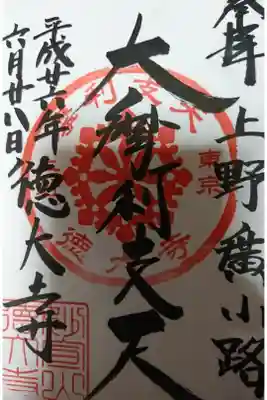 奉拝 上野廣小路
大摩利支天
平成廿六年
六月廿八日
徳大寺
摩利支天
東京
徳大寺
徳大寺